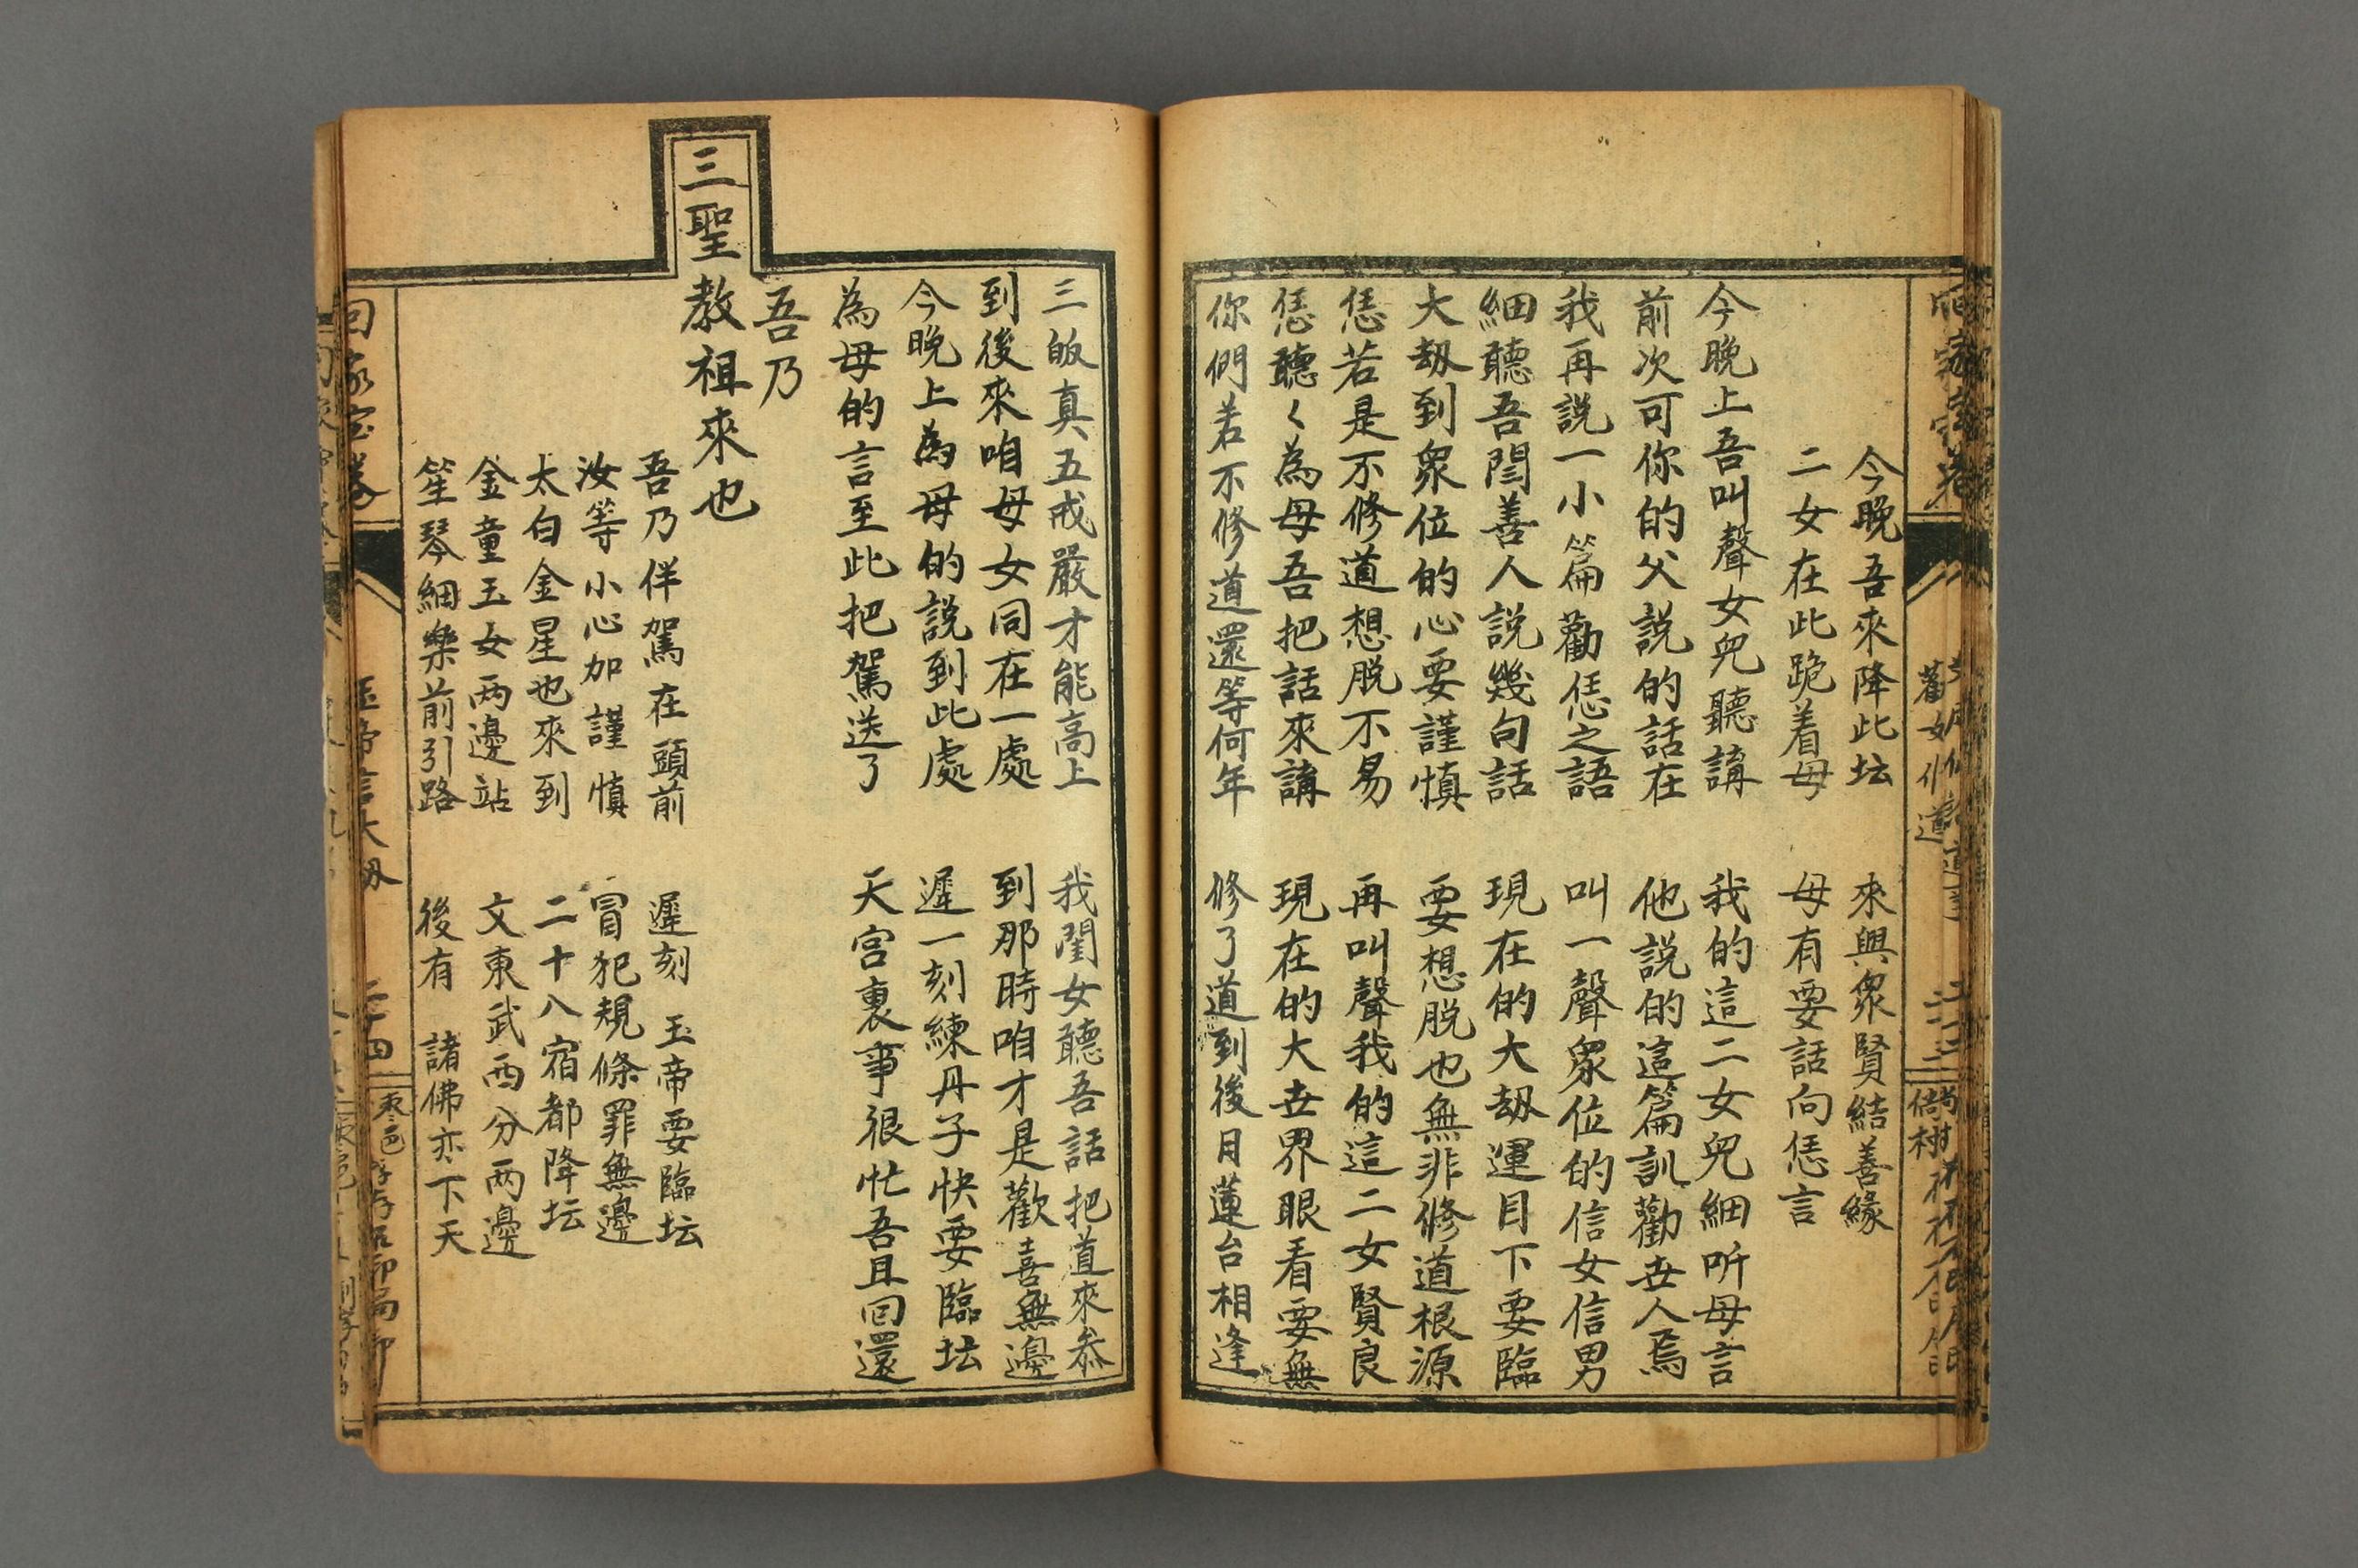 今晚吾來降此坛 來與衆賢結善緣
二女在此跪着母 母有要話向恁言
今晚上吾叫聲女兒聽講 我的這二女兒細听母言
前次可你的父說的話在 他說的這篇訓勸世人焉
我再說一小篇勸恁之語 叫一聲衆位的信女信男
細聽吾閆善人說幾句話 現在的大刼運目下要臨
大刼到衆位的心要謹慎 要想脫也無非修道根源
恁若是不修道想脫不易 再叫聲我的這二女賢良
恁聽く為母吾把話來講 現在的大世界眼看要無
你們若不修道還等何年 修了道到後月蓮台相逢
三皈真五戒嚴才能高上 我閨女聽吾話把道來叅
到後來咱母女同在一處 到那時咱才是歡喜無邊
今晚上為母的說到此處 遲一刻練丹子快要臨坛
為母的言至此把駕送了 天宮裏事很忙吾且回還
吾乃
三聖教祖來也
吾乃伴駕在頭前 遲刻 玉帝要臨坛
汝等小心加謹慎 冒犯規條罪無邊
太白金星也來到 二十八宿都降坛
金童玉女两邊站 文東武西分两邊
笙琴細樂前引路 後有 諸佛亦下天